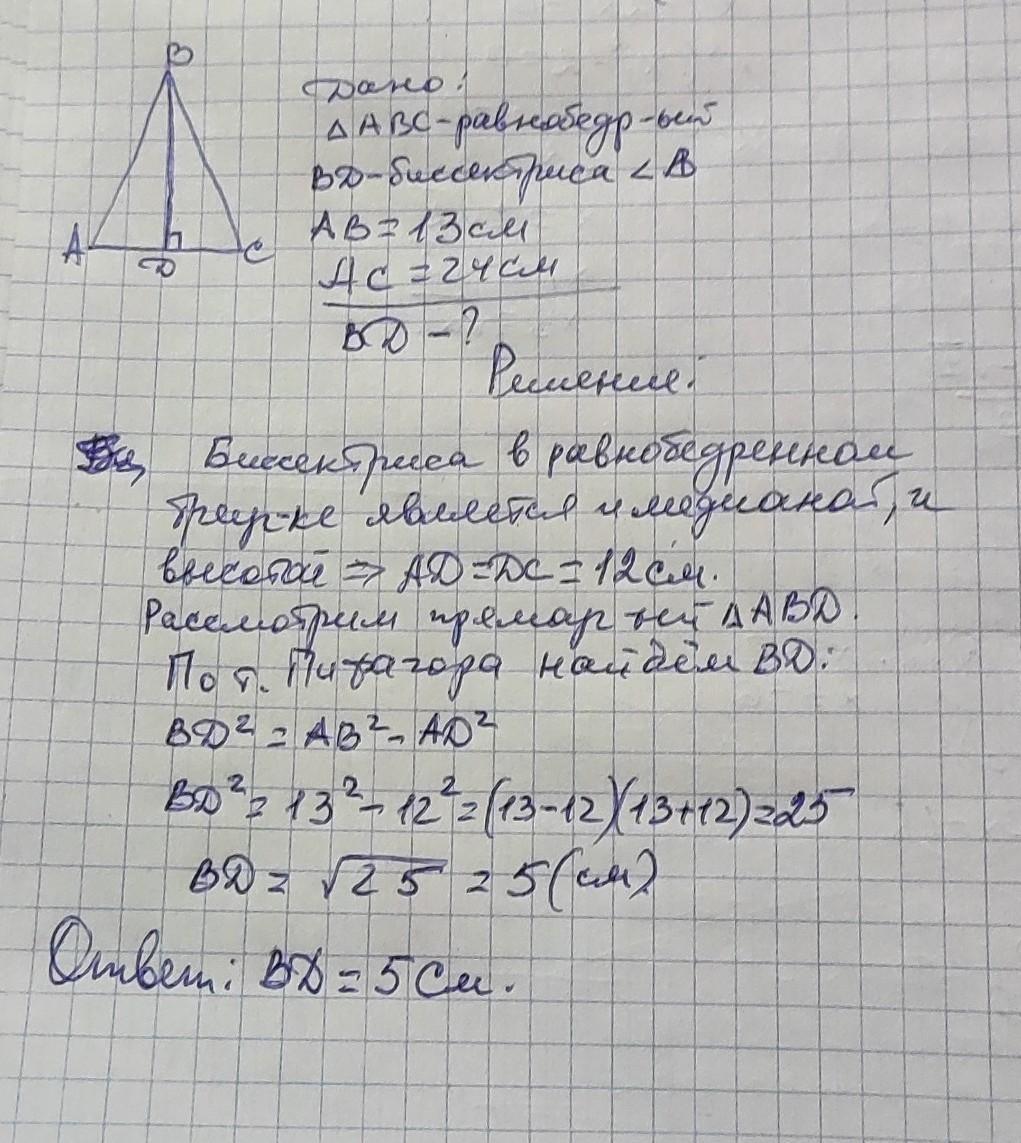 B
A
D
C
Дано:
△ABC-равнобедр-ый
BD-биссектриса ∠B
AB = 13 см
AC = 24 см
BD - ?
Решение:
Биссектриса в равнобедренном
треуг-ке является и медианой, и
высотой ⇒ AD = DC = 12 см.
Рассмотрим прямоуг-ый △ABD.
По т. Пифагора найдём BD:
BD² = AB² - AD²
BD² = 13² - 12² = (13-12)(13+12) = 25
BD = √25 = 5 (см)
Ответ: BD = 5 см.